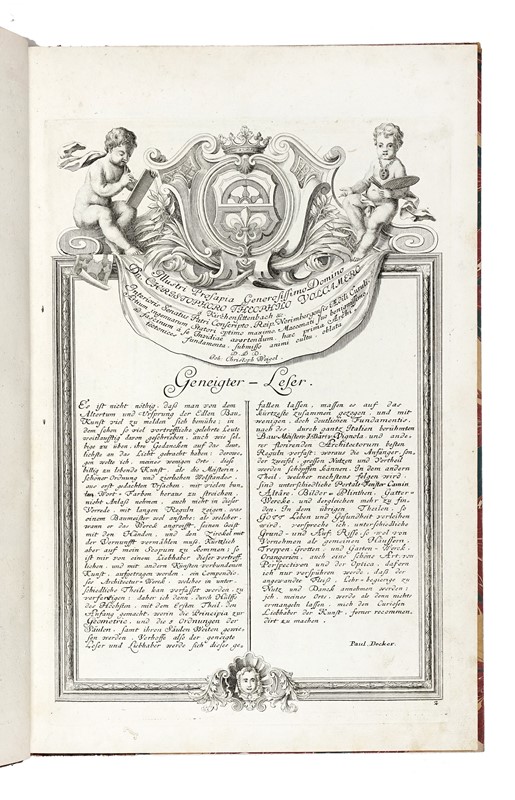 Illustri Prosapia Generosissimo Domino
Dn. CHRISTOPHORO THEOPHILO VOLCAMERO
à Kirchensittenbach &c.
Interioris Senatus Patri Conscripto. Reip. Norimbergensis
optimo maximo Maecenati suo benignissimo
haec prima Archi-
tectonices fundamenta, submisso animi cultu oblata
D. D. D.
Joh. Christoph Weigel.
Geneigter - Leser.
Es ist nicht nöthig, daß man von dem
Altertum und Ursprung der Edlen Bau-
Kunst viel zu melden sich bemühe; in
dem schon so viel vortreffliche gelehrte Leute
weitläufftig davon geschrieben, auch wie sol-
che zu üben, ihre Gedancken auf das deut-
lichste an das Licht gebracht haben; derowe-
gen wolte ich, meines wenigen Orts, diese
billig zu lobende Kunst, als die Meisterin,
schöner Ordnung und zierlichen Wolstandes,
aus erst gedachten Ursachen, mit vielen bun-
ten Wort-Farben heraus zu streichen,
nicht Anlaß nehmen, auch nicht in dieser
Vorrede, mit langen Reguln zeigen, was
einem Baumeister wol anstehe; als welcher,
wenn er das Werck angreifft, seinen Geist
mit den Händen, und den Zirckel mit
der Vernunfft vermählen muß. Kürtzlich
aber auf mein Scopum zu kommen; so
ist mir von einem Liebhaber dieser vortreff-
lichen, und mit andern Künsten verbundenen
Kunst, aufgetragen worden, ein Compendio-
ses Architectur-Werck, welches in unter-
schiedliche Theile kan verfasset werden, zu
verfertigen; daher ich denn, durch Hülffe
des Höchsten, mit dem Ersten Theil, den
Anfang gemacht, worin die Principia zur
Geometrie, und die 5 Ordnungen der
Säulen, samt ihren Säulen Weiten gewie-
sen werden. Verhoffe also der geneigte
Leser und Liebhaber werde sich dieses ge-
fallen lassen, massen es auf das
kürtzeste zusammen gezogen, und mit
wenigen, doch deutlichen Fundamentis,
nach des, durch gantz Italien berühmten
Bau-Meisters, J. Bärozzi Vignola, und ande-
rer florirenden Architectorum besten
Reguln verfast; woraus die Anfänger, son-
der zweifel, grossen Nutzen und Vortheil
werden schöpffen können. In dem andern
Theil, welcher nechstens folgen wird,
sind unterschiedliche Portale, Fenster, Camin
Altäre, Bilder-Plinthen, Gatter-
Wercke, und dergleichen mehr zu fin-
den. In dem übrigen Theilen, so
GOTT Leben und Gesundheit verleihen
wird, verspreche ich, unterschiedliche
Grund- und Auf-Risse, so wol von
Vornehmen als gemeinen Häussern,
Treppen, Grotten, und Garten-Werck,
Orangerien, auch eine schöne Art von
Perspectiven und der Optica, dafern
ich nur versprühren werde, daß der
angewandte Fleiß, Lehr-begierige zu
Nutz und Danck annehmen werden;
ich, meines Orts, werde es denn nichts
ermangeln lassen, mich den Curiösen
Liebhaber der Kunst, ferner recommen-
dirt zu machen.
Paul Decker.
2